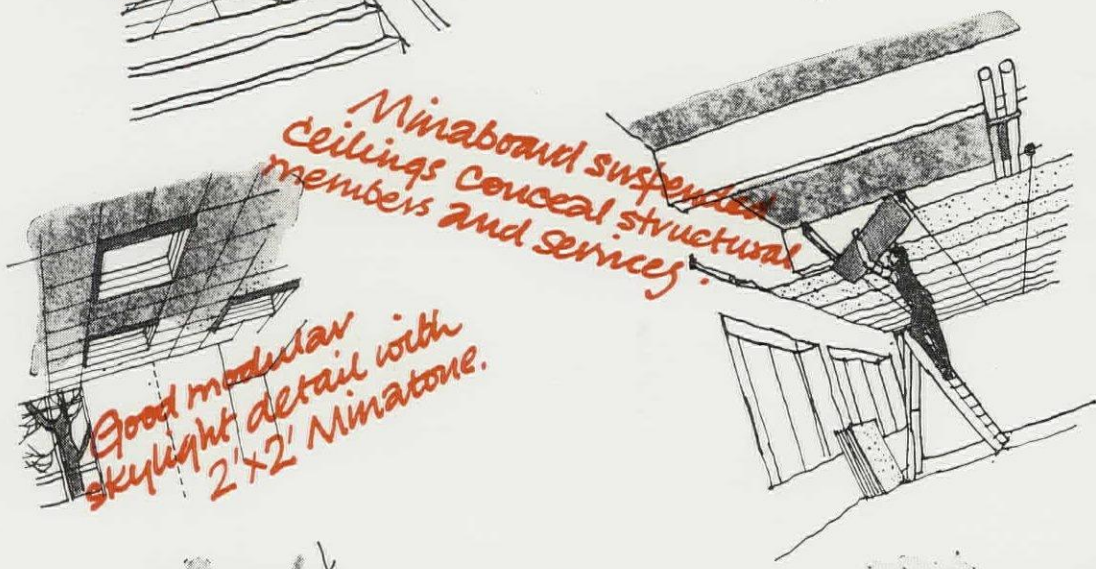 Minaboard suspended
ceilings conceal structural
members and services.
Good modular
skylight detail with
2'x2' Minatone.